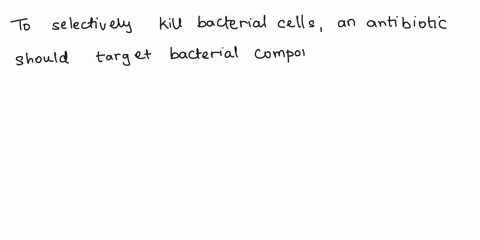 To selectively kill bacterial cells, an antibiotic
should target bacterial compo